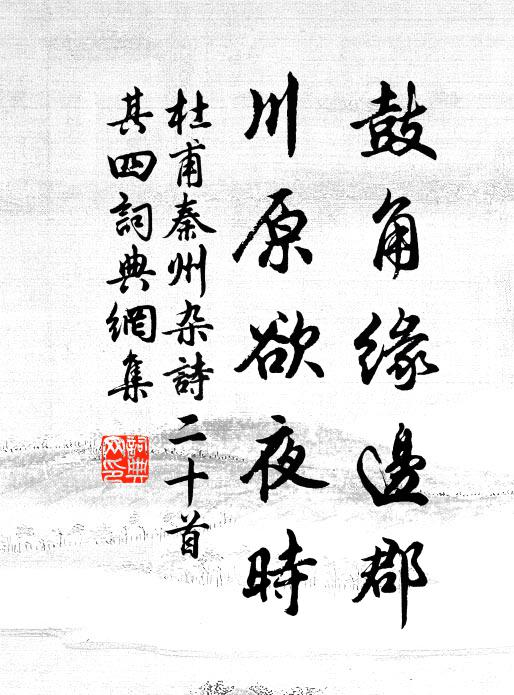 鼓角缘邊郡
川原欲夜時
杜甫秦州杂詩二十首
其四詞典網集
詞典网印